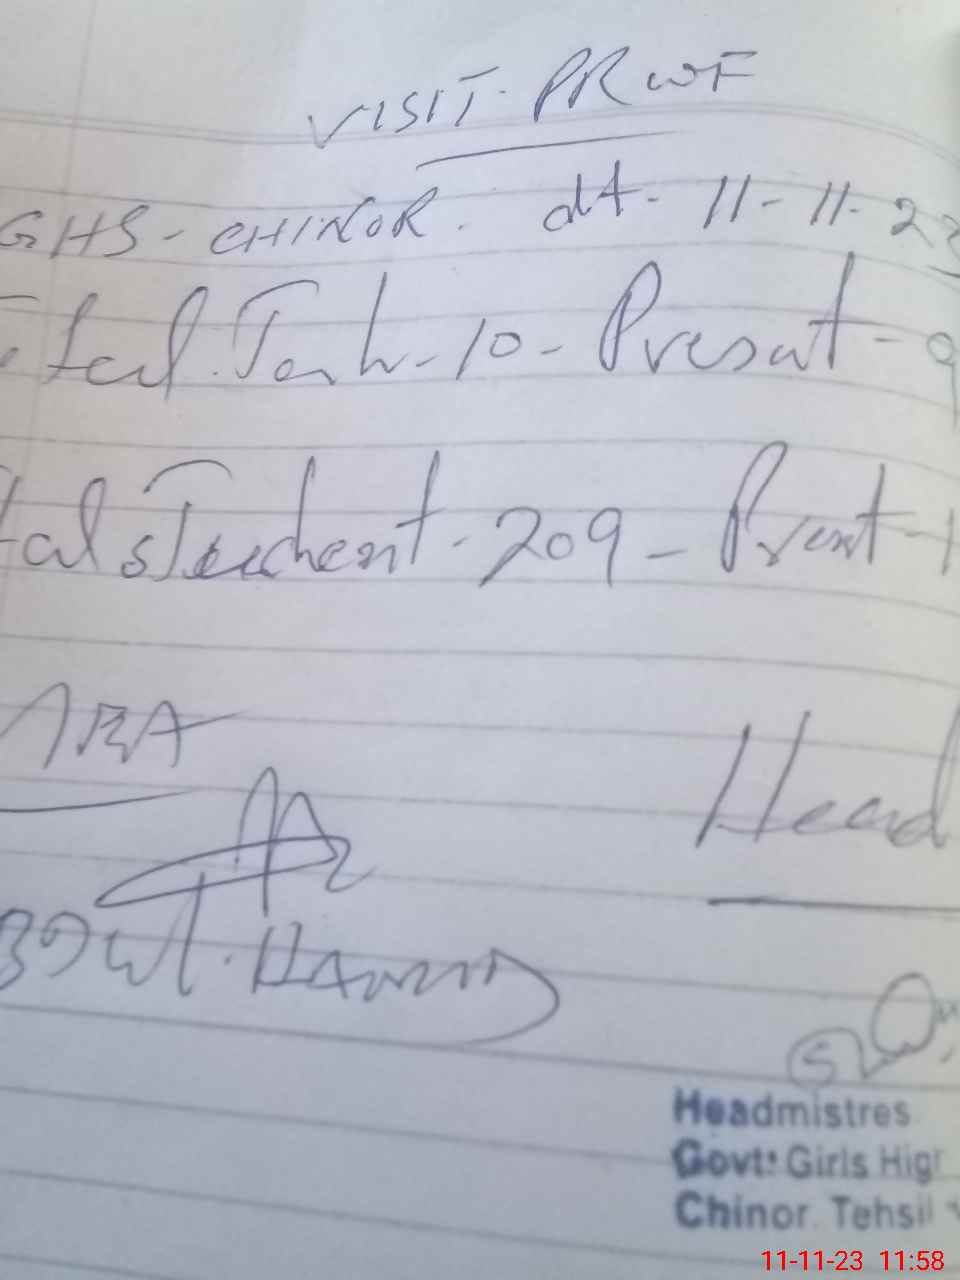 VISIT. PRWF
GHS - CHINOR. dt - 11-11-23
Total. Teach - 10 - Present - 9
Total Student - 209 - Present - 1
Head
Headmistres
Govt: Girls High
Chinor. Tehsil
11-11-23 11:58